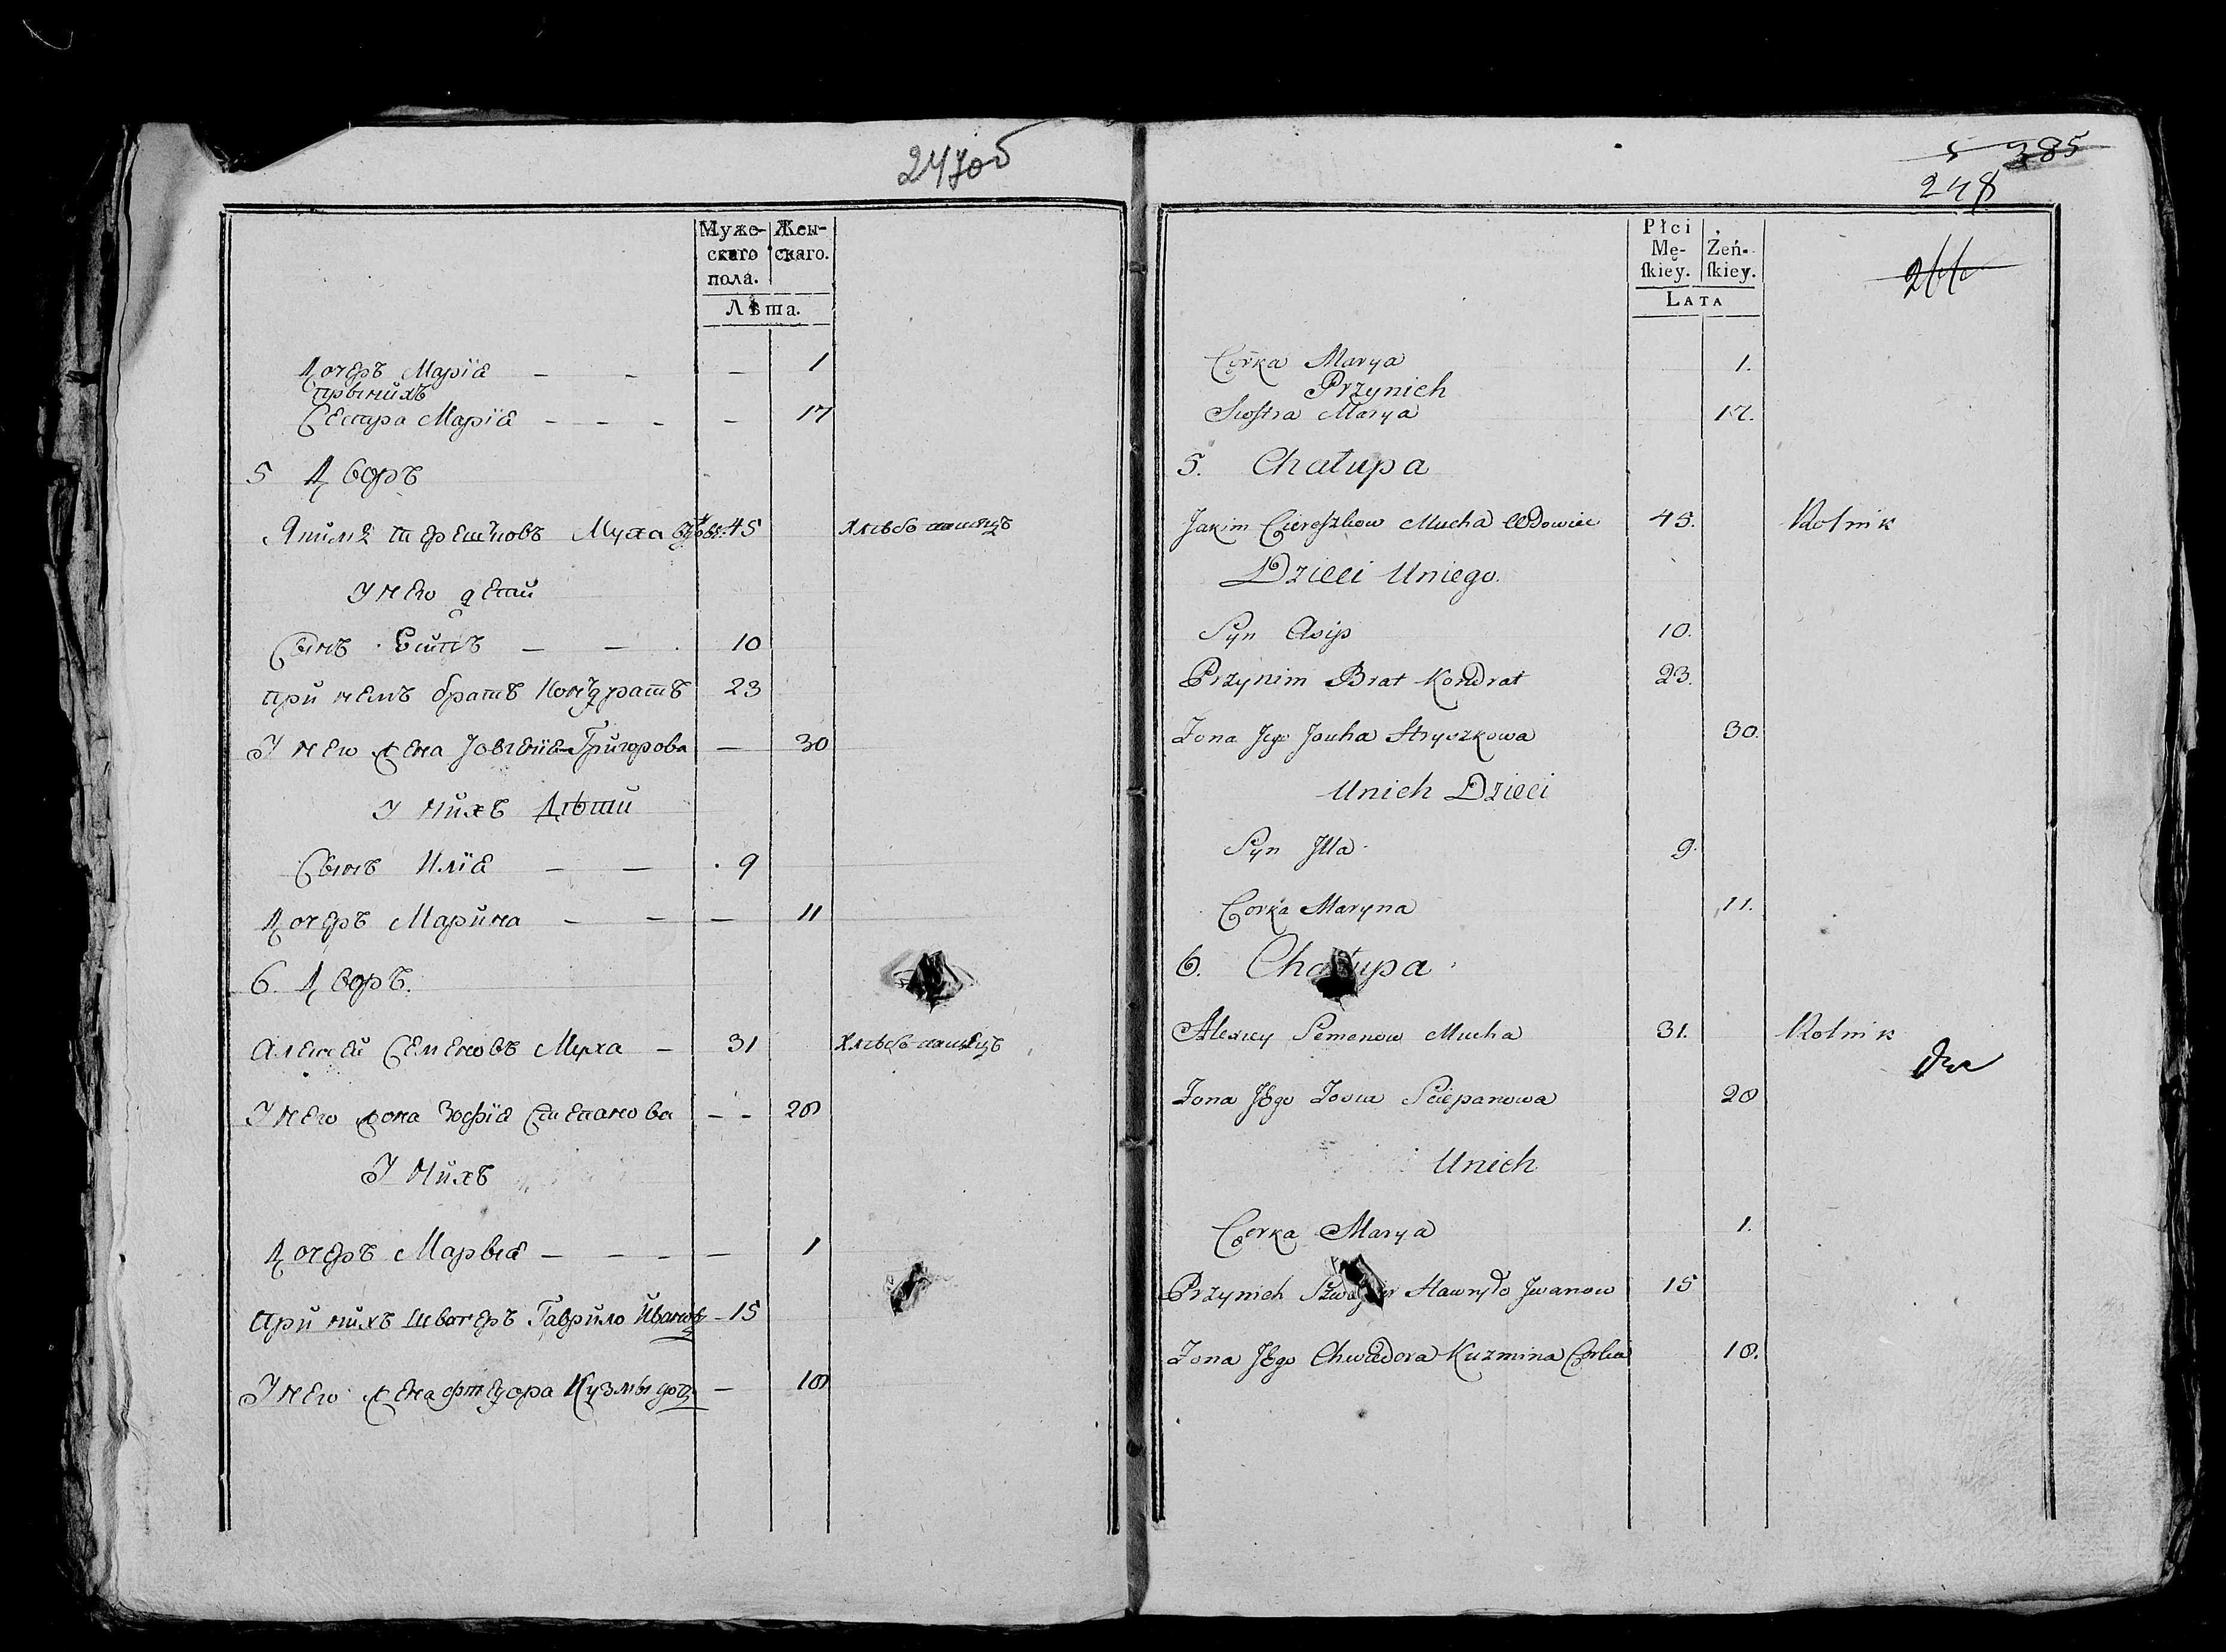 247об
Муже-
скаго
пола.
Жен-
скаго.
Лѣта.
Дочеръ Марїѧ — — — 1
прыныхъ
Сестра Марїѧ — — — — 17
5 Дворъ
Якимъ Терешковъ Муха вдовъ: 45 Хлѣбопашецъ
У него дети
Сынъ Есипъ — — 10
при немъ братъ Кондратъ 23
У него жена Григорова — 30
У нихъ Дѣти
Сынъ Илїѧ — — 9
Дочеръ Марина — — — 11
6. Дворъ.
Алексей Семеновъ Муха — 31 Хлѣбопашецъ
У него жона Зофїѧ Степанова — — 20
У нихъ
Дочеръ Марыѧ — — — — 1
При нихъ швагеръ Гаврило Ивановъ — 15
У него жена Фтедора Кузмы доч — 18
5 385
248
Płci
Mę-
skiey.
Żeń-
skiey.
LATA
Corka Marya 1.
Przynich
Siostra Marya 17.
5. Chałupa
Jakim Ciereszkow Mucha Wdowiec 45. Rolnik
Dzieci Uniego.
Syn Asip 10.
Przynim Brat Kondrat 23.
Zona Jego Jouha Hryszkowa 30.
Unich Dzieci
Syn Jlla 9.
Corka Maryna 11.
6. Chałupa
Alexiey Semenow Mucha 31. Rolnik
Zona Jego Zosia Sciepanowa 20
Unich
Corka Marya 1.
Przynich Szwagier Hawryło Jwanow 15
Zona Jego Chwiedora Kuzmina Corka 18.